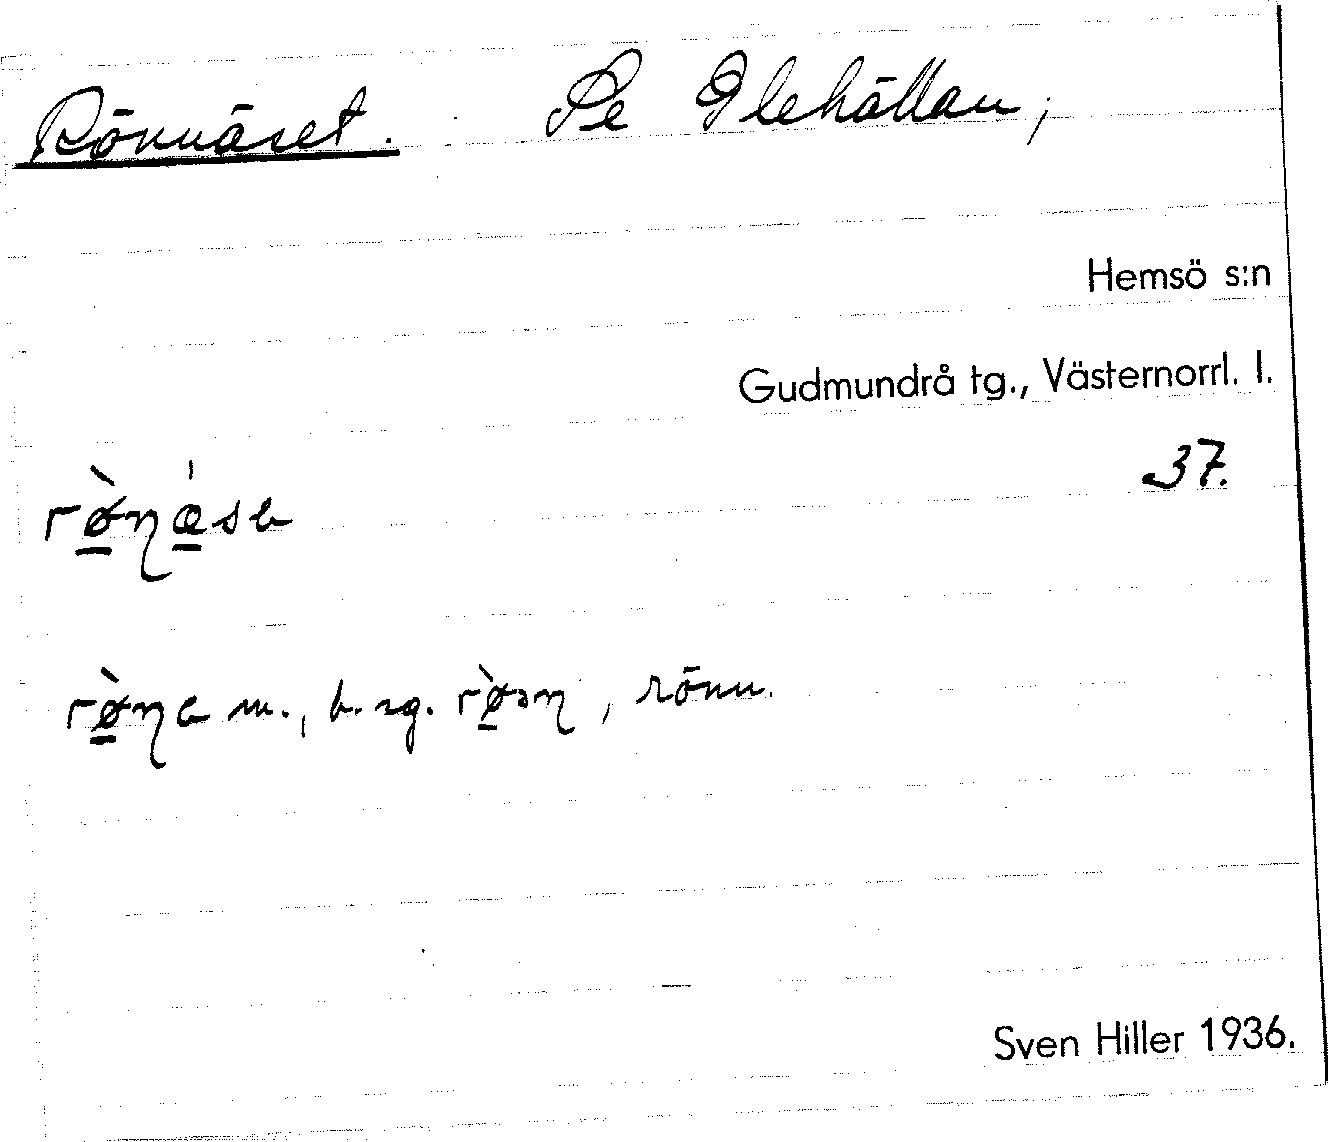 Rönnäset. Se Glehällan;
Hemsö s:n
Gudmundrå tg., Västernorrl. l.
37.
m., b. sg. , rönn.
Sven Hiller 1936.